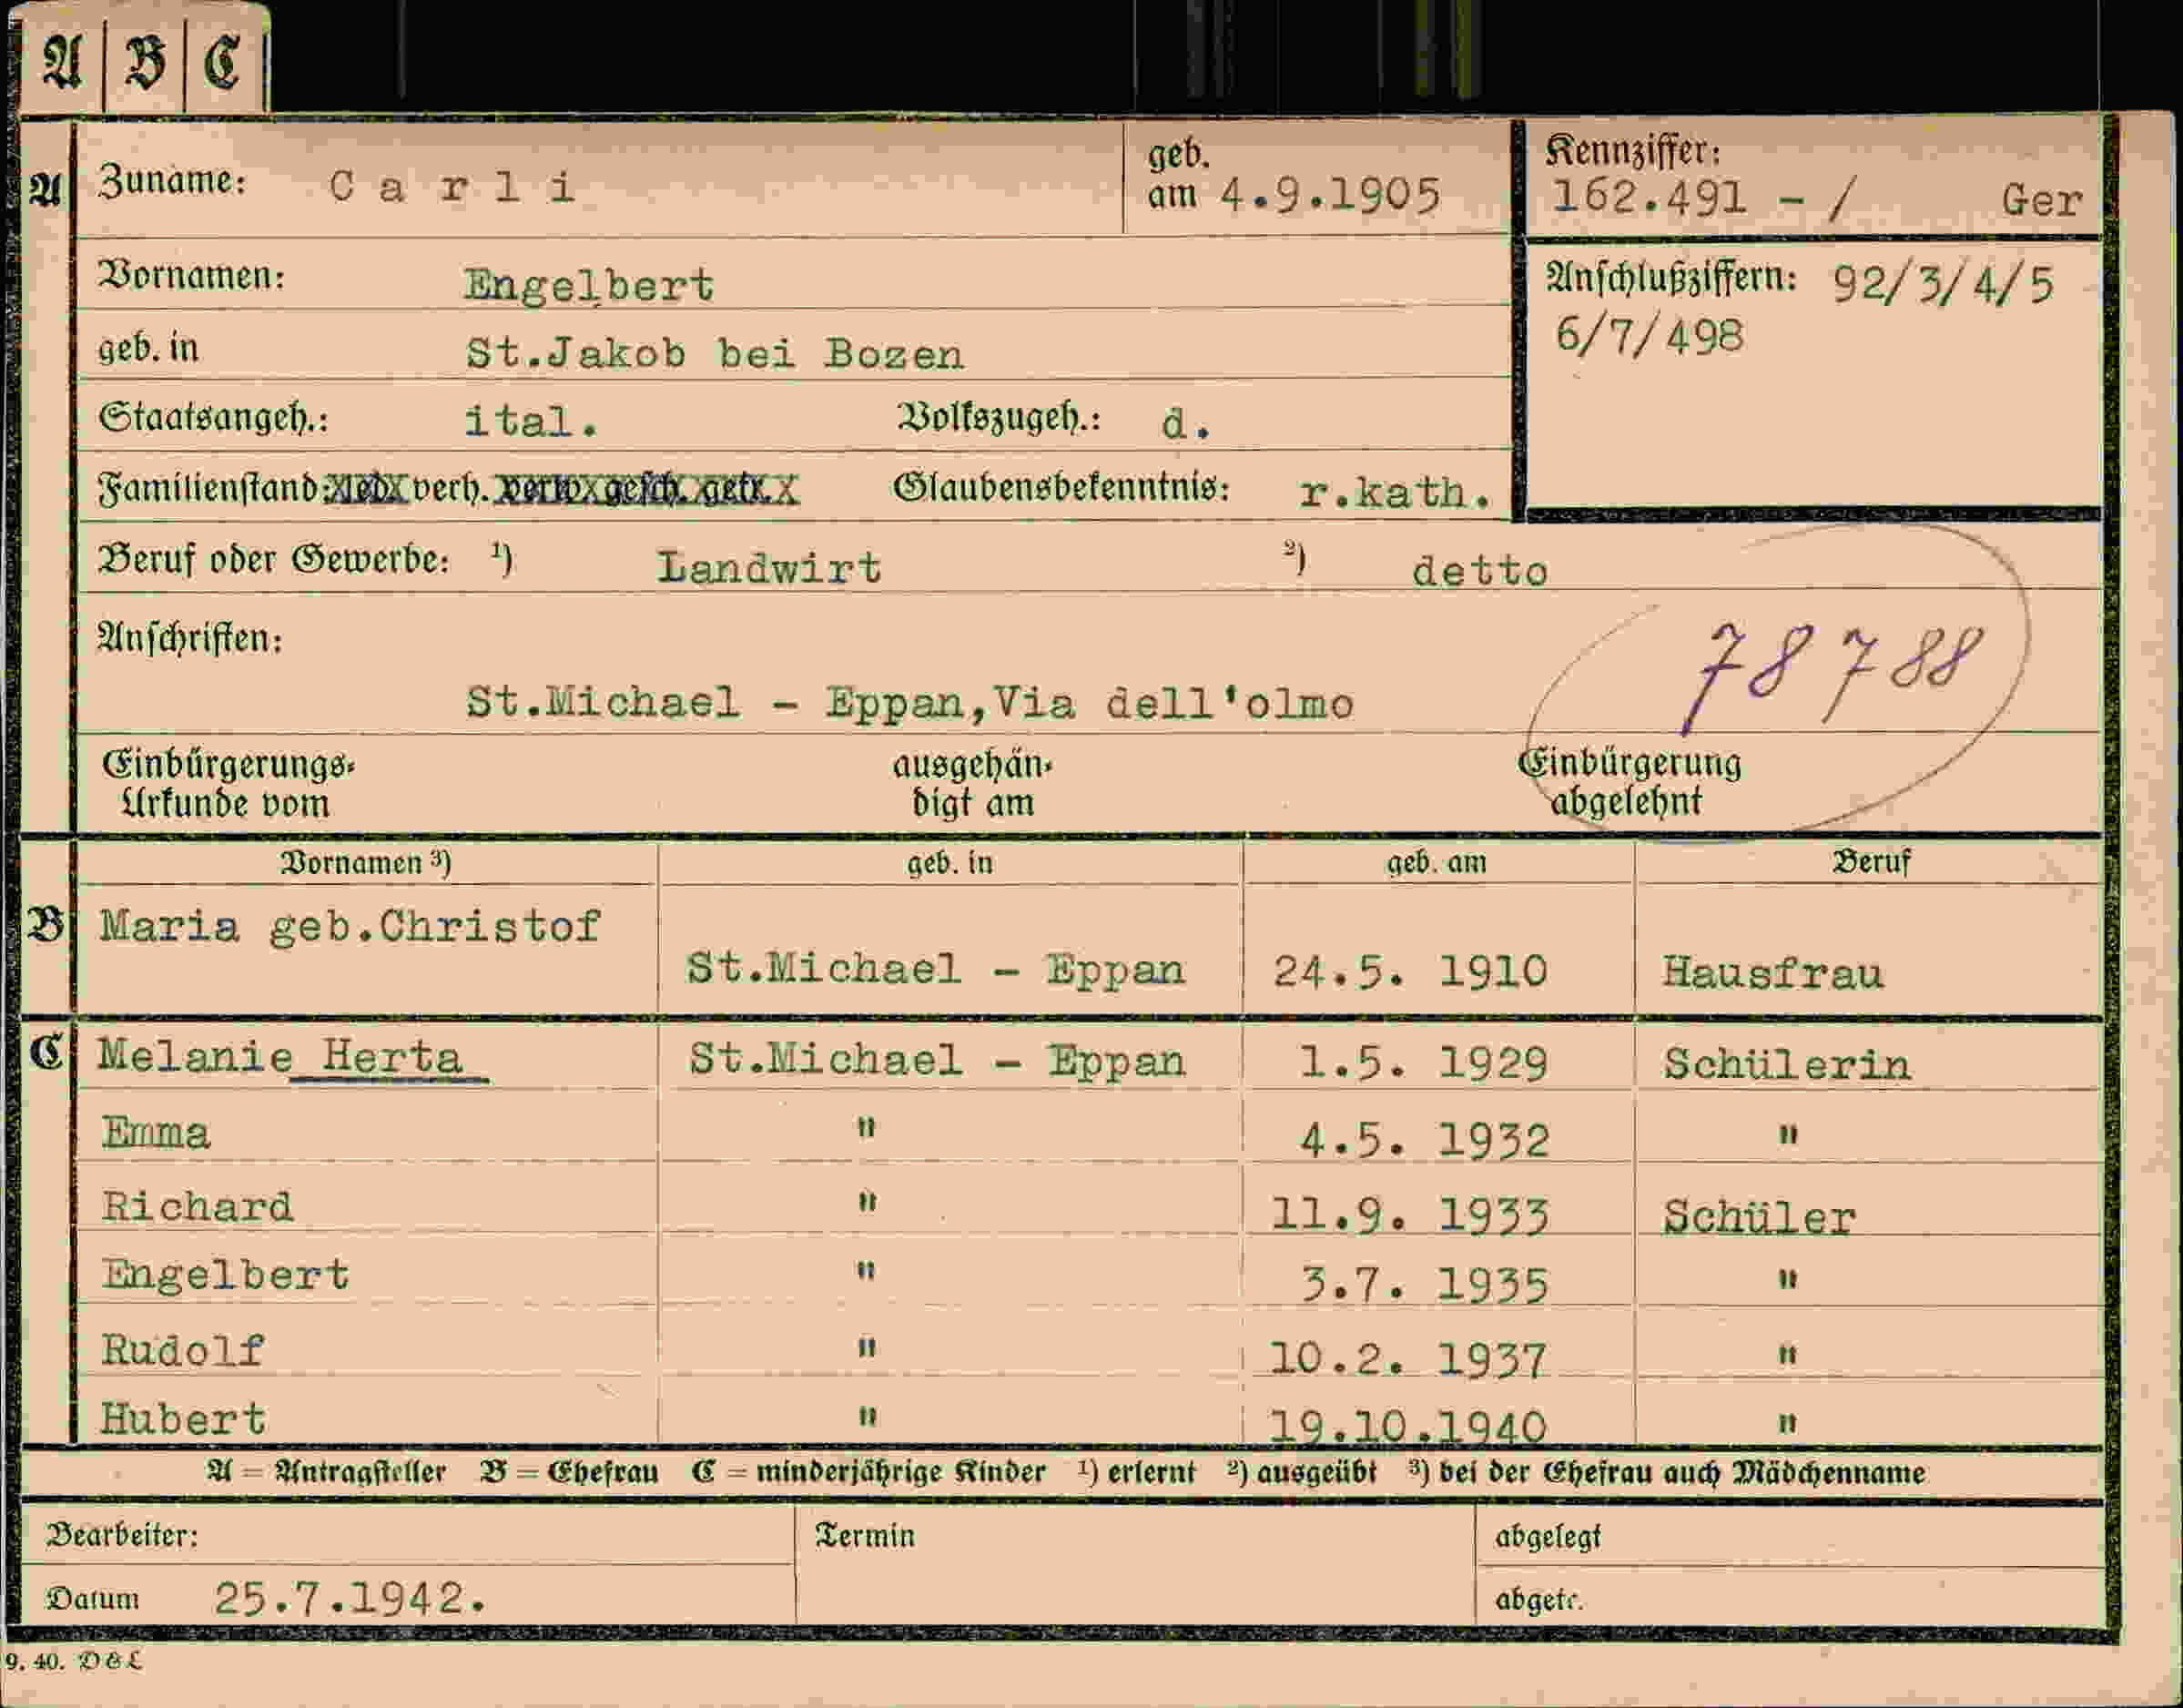 A B C
A Zuname: Carli geb. am 4.9.1905
Kennziffer:
162.491 - / Ger
Vornamen: Engelbert
Anschlußziffern: 92/3/4/5
6/7/498
geb. in St.Jakob bei Bozen
Staatsangeh.: ital. Volkszugeh.: d.
Familienstand: led. verh. verw. gesch. getr. Glaubensbekenntnis: r.kath.
Beruf oder Gewerbe: 1) Landwirt 2) detto
Anschriften:
78788
St.Michael - Eppan,Via dell'olmo
Einbürgerungs-
Urkunde vom
ausgehän-
digt am
Einbürgerung
abgelehnt
Vornamen 3) geb. in geb. am Beruf
B Maria geb.Christof
St.Michael - Eppan 24.5. 1910 Hausfrau
C Melanie Herta St.Michael - Eppan 1.5. 1929 Schülerin
Emma " 4.5. 1932 "
Richard " 11.9. 1933 Schüler
Engelbert " 3.7. 1935 "
Rudolf " 10.2. 1937 "
Hubert " 19.10.1940 "
A = Antragsteller B = Ehefrau C = minderjährige Kinder 1) erlernt 2) ausgeübt 3) bei der Ehefrau auch Mädchenname
Bearbeiter: Termin abgelegt
Datum 25.7.1942. abgetr.
9. 40. D&L